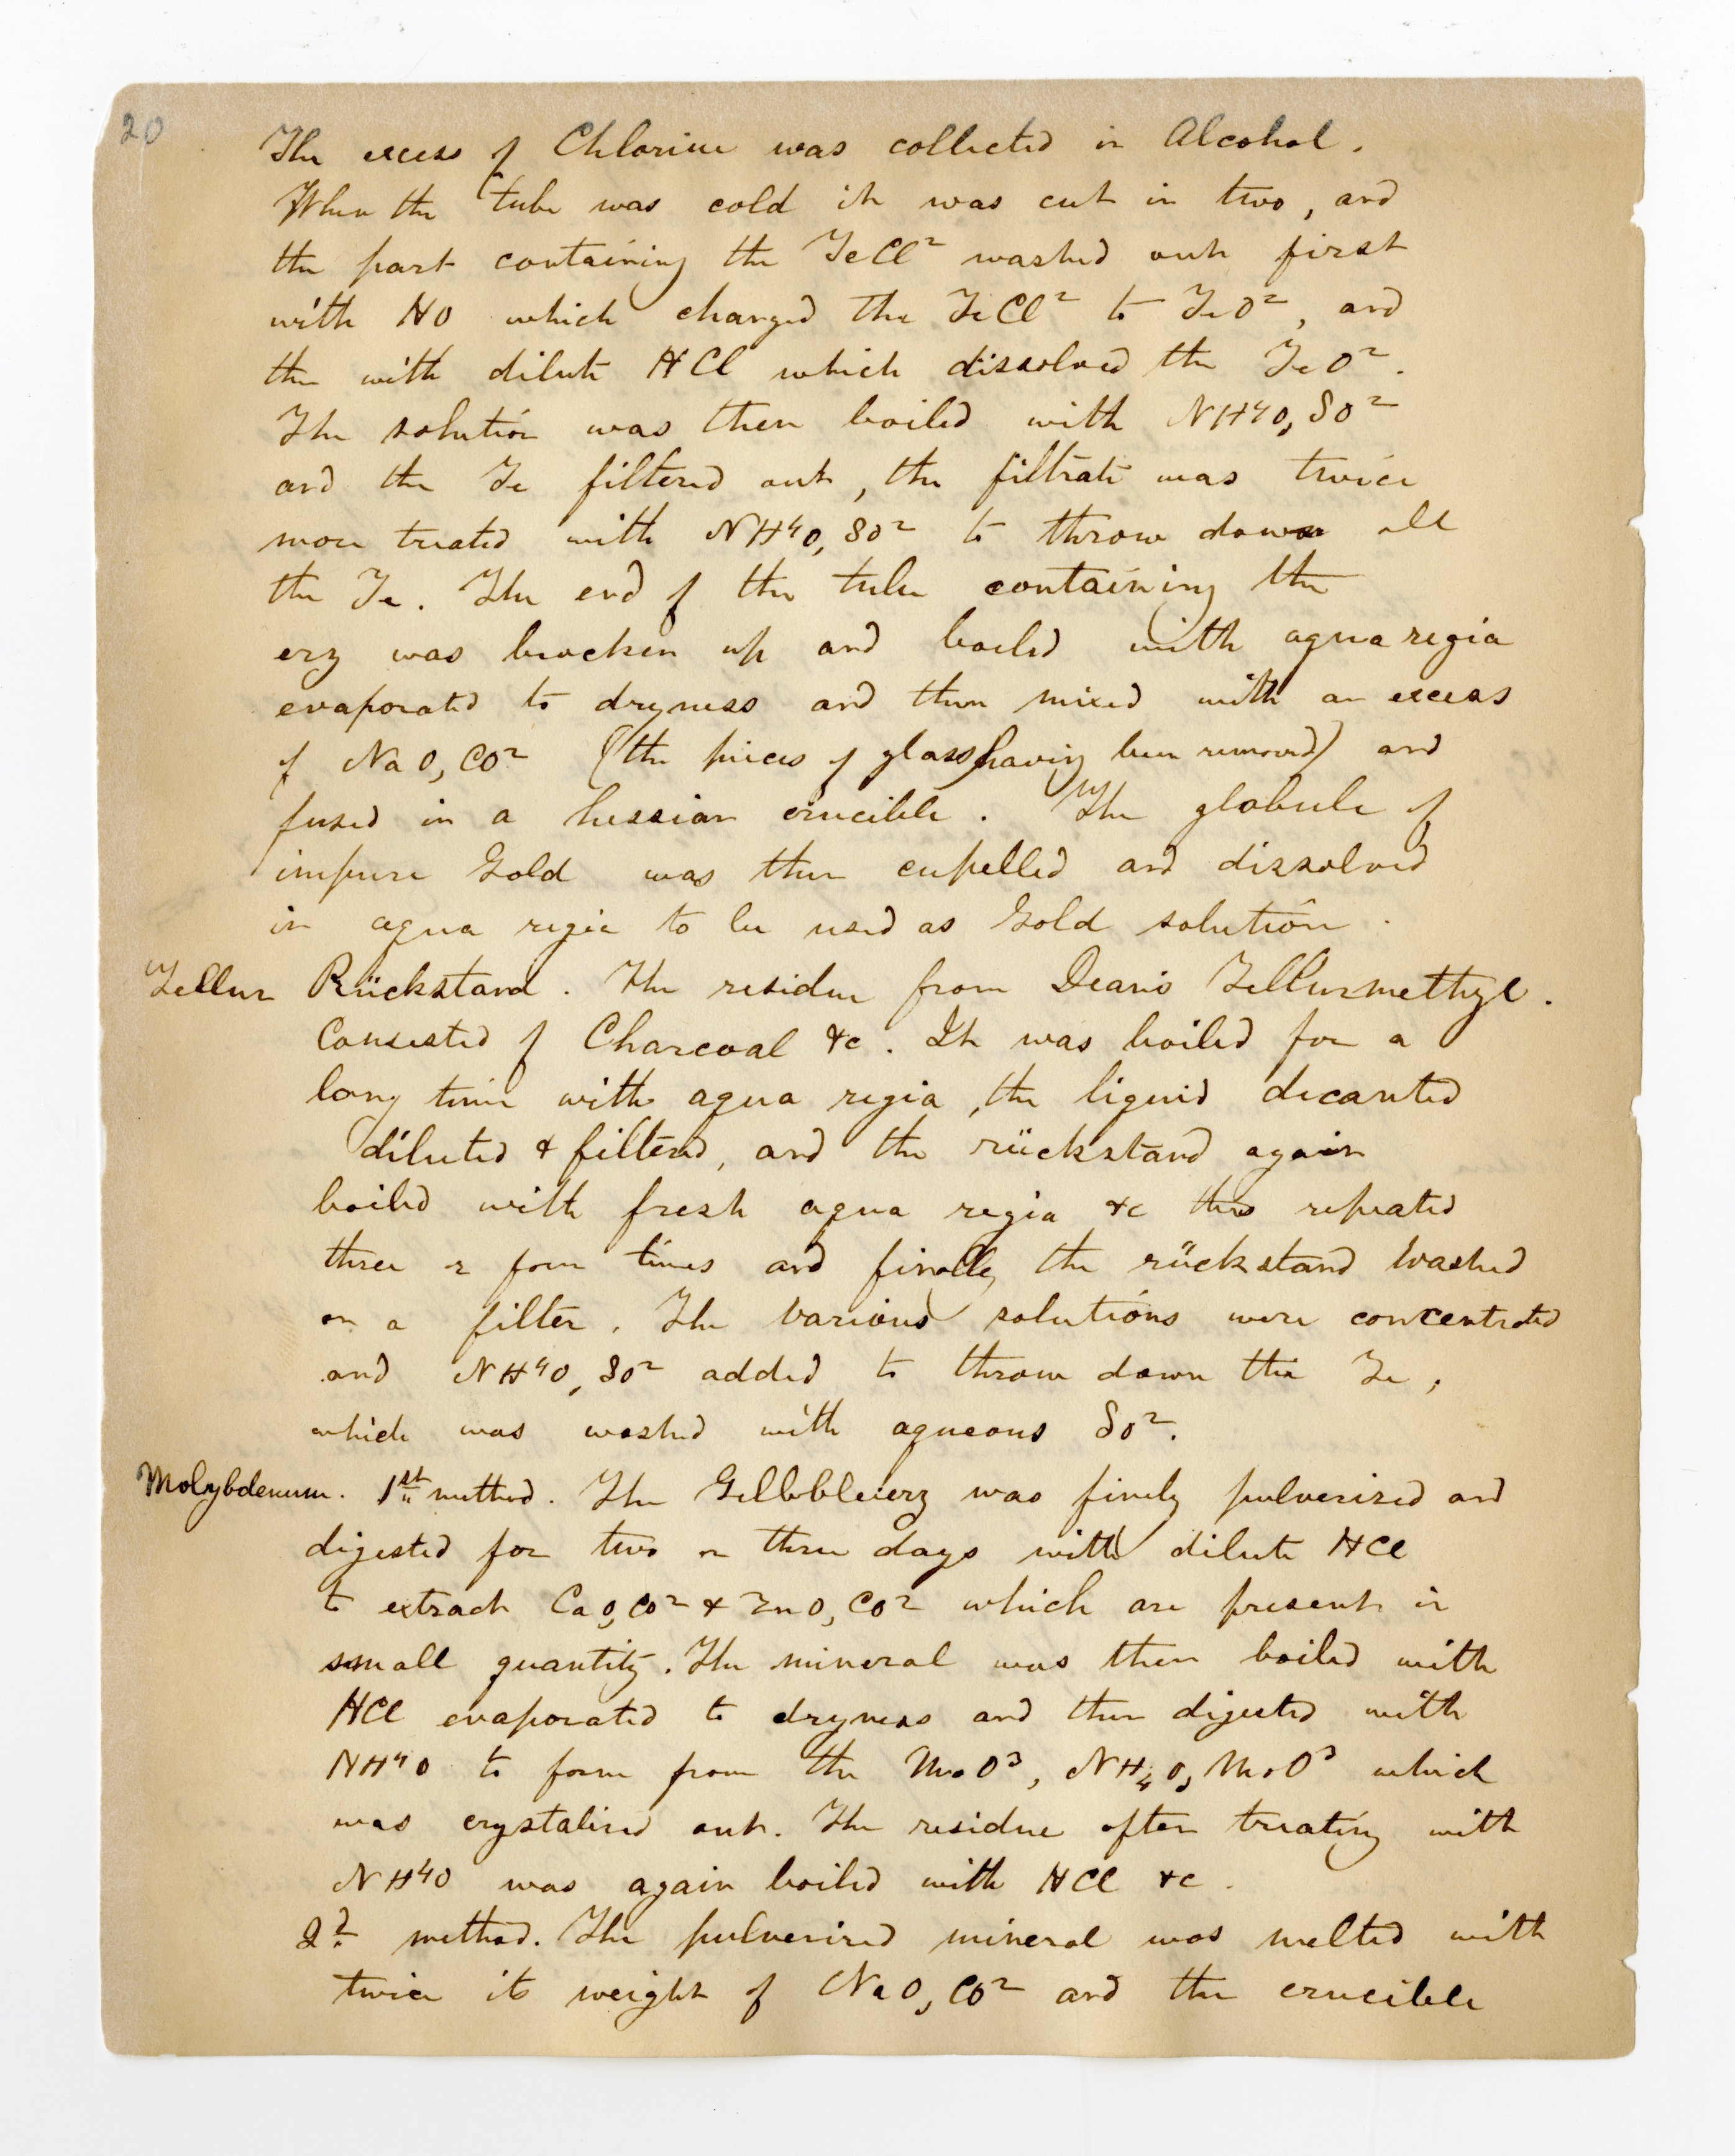 20
The excess of Chlorine was collected in Alcohol.
When the tube was cold it was cut in two, and
the part containing the TeCl² washed out first
with HO which changed the TeCl² to TeO², and
the with dilute HCl which dissolved the TeO².
The solution was then boiled with NH⁴O, SO²
and the Te filtered out, the filtrate was twice
more treated with NH⁴O, SO² to throw down all
the Te. The end of the tube containing the
erz was brocken up and boiled with aqua regia
evaporated to dryness and then mixed with an excess
of NaO, CO² (the pieces of glass having been removed) and
fused in a hessian crucible. The globule of
impure Gold was then cupelled and dissolved
in aqua regia to be used as Gold solution.
Tellur Rückstand. The residue from Dean's Tellurmethyl.
Consisted of Charcoal &c. It was boiled for a
long time with aqua regia, the liquid decanted
diluted & filtered, and the rückstand again
boiled with fresh aqua regia &c this repeated
three or four times and finally the rückstand washed
on a filter. The various solutions were concentrated
and NH⁴O, SO² added to throw down the Te,
which was washed with aqueous SO².
Molybdenum. 1st method. The Gelbbleierz was finely pulverized and
digested for two or three days with dilute HCl
to extract CaO, CO² & ZnO, CO² which are present in
small quantity. The mineral was then boiled with
HCl evaporated to dryness and then digested with
NH⁴O to form from the MoO³, NH₄O, MoO³ which
was crystalized out. The residue after treating with
NH⁴O was again boiled with HCl &c.
2d method. The pulverized mineral was melted with
twice its weight of NaO, CO² and the crucible